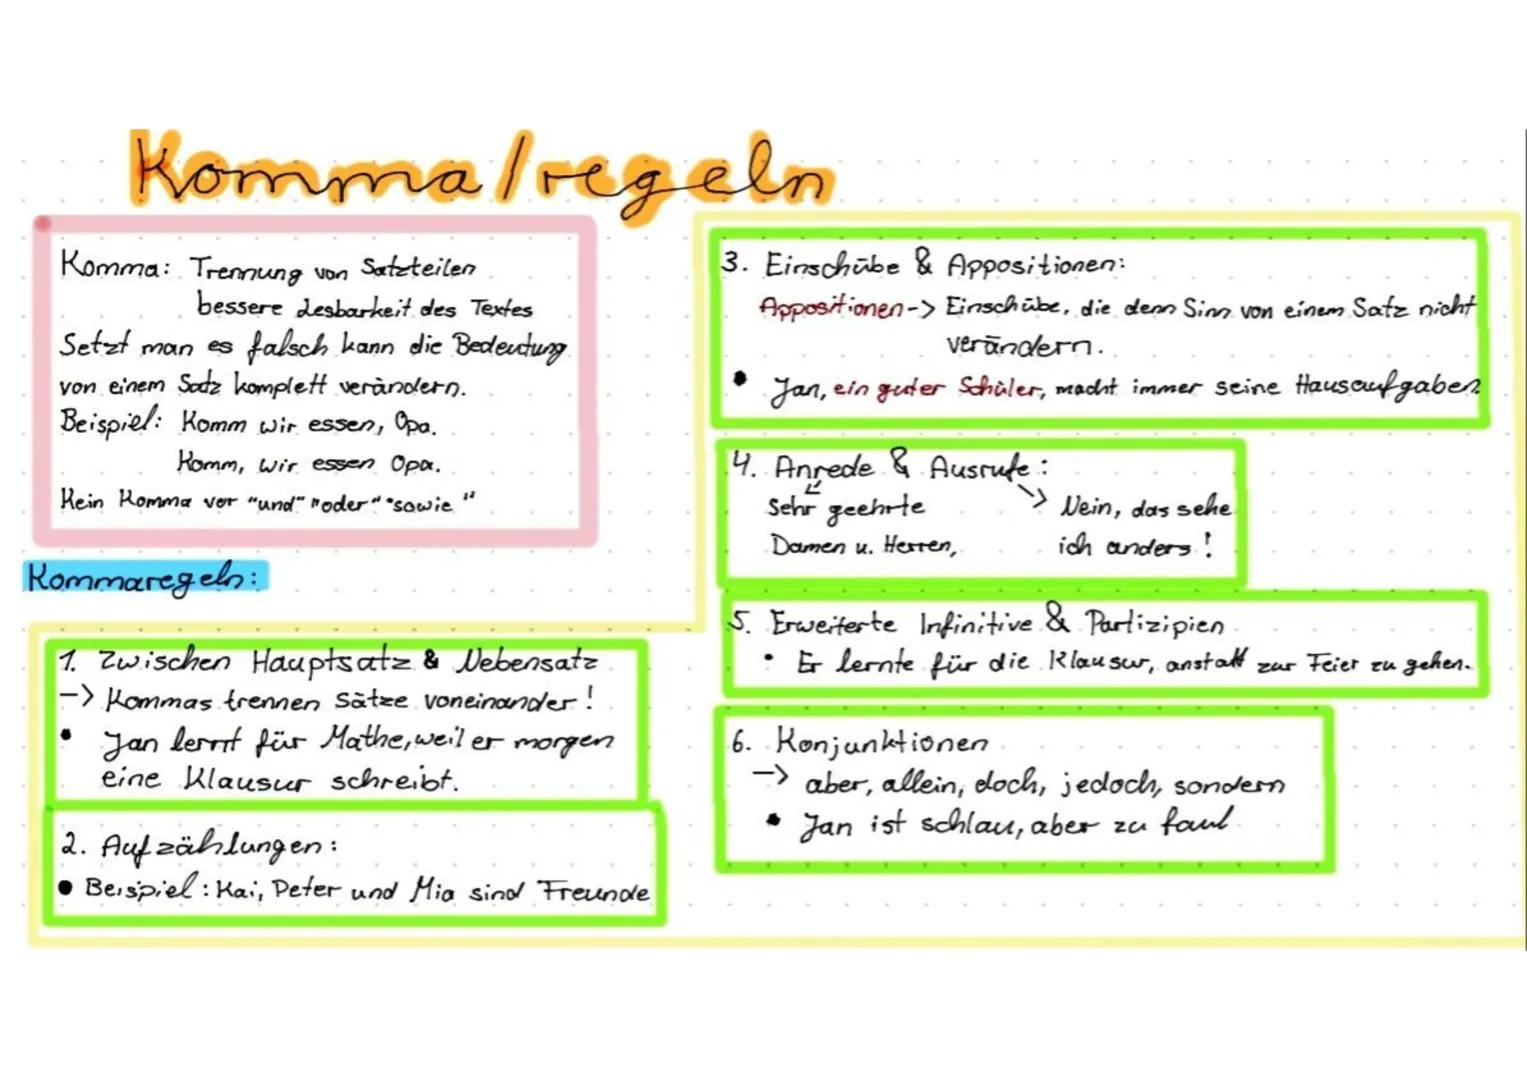 Komma/regeln
Komma: Trennung von Satzteilen
bessere Lesbarkeit des Textes
Setzt man es falsch kann die Bedeutung
von einem Satz komplett verändern.
Beispiel: Komm wir essen, Opa.
Komm, wir essen Opa.
Kein Komma vor "und" "oder" "sowie"
Kommaregeln:
1. Zwischen Hauptsatz & Nebensatz
-> Kommas trennen Sätze voneinander!
• Jan lernt für Mathe, weil er morgen
eine Klausur schreibt.
2. Aufzählungen:
• Beispiel: Kai, Peter und Mia sind Freunde
3. Einschübe & Appositionen:
Appositionen -> Einschübe, die denn Sinn von einem Satz nicht
verändern.
• Jan, ein guter Schüler, macht immer seine Hausaufgaben
4. Anrede & Ausrufe:
Sehr geehrte
Damen u. Herren,
-> Nein, das sehe
ich anders!
5. Erweiterte Infinitive & Partizipien
• Er lernte für die Klausur, anstatt zur Feier zu gehen.
6. Konjunktionen
-> aber, allein, doch, jedoch, sondern
• Jan ist schlau, aber zu faul